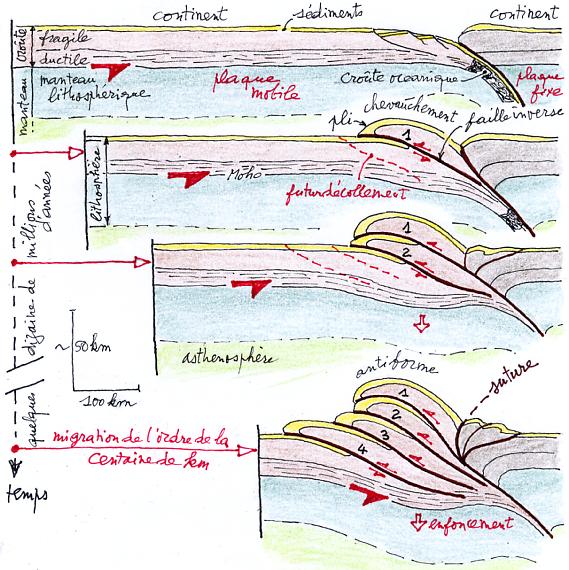 continent
sédiments
continent
croûte
fragile
ductile
manteau
manteau
lithosphérique
plaque
mobile
croûte océanique
plaque
fixe
pli
chevauchement
faille inverse
1
lithosphère
Moho
futur décollement
1
2
asthenosphère
~50km
100km
antiforme
suture
1
2
3
4
migration de l'ordre de la
centaine de km
enfoncement
quelques
dizaine de
millions
d'années
temps